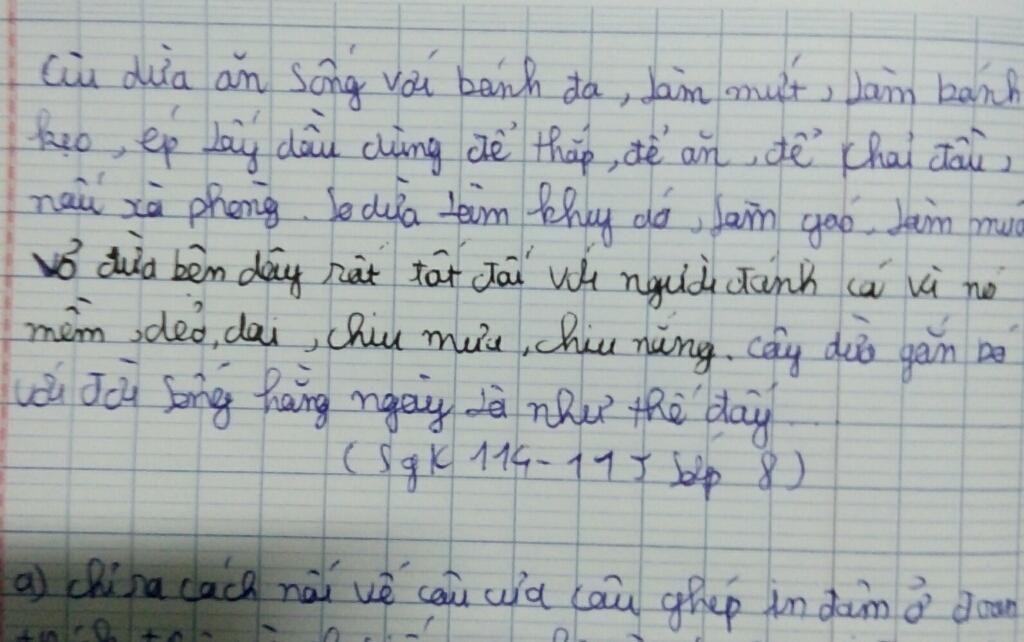 Cùi dừa ăn sống với bánh đa, làm mứt, làm bánh
kẹo, ép lấy dầu dùng để thắp, để ăn, để chải đầu,
nấu xà phòng. Sọ dừa làm khuy áo, làm gáo, làm muôi
vỏ dừa bện dây rất tốt đối với người đánh cá vì nó
mềm, dẻo, dai, chịu mưa, chịu nắng. cây dừa gắn bó
với đời sống hằng ngày là như thế đấy
(Sgk 114-115 lớp 8)
a) chỉ ra cách nối vế câu của câu ghép in đậm ở đoạn